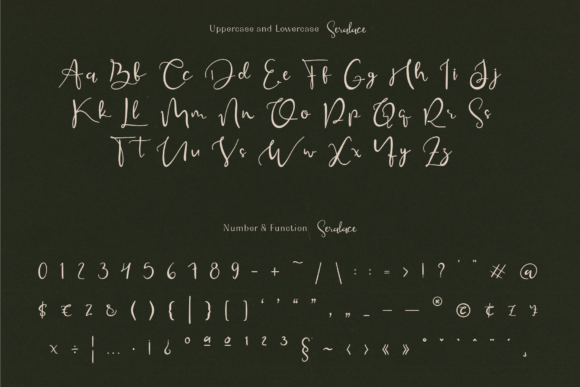 Uppercase and Lowercase Seraluce
Aa Bb Cc Dd Ee Ff Gg Hh Ii Jj
Kk Ll Mm Nn Oo Pp Qq Rr Ss
Tt Uu Vs Ww Xx Yy Zz
Number & Function Seraluce
0 1 2 3 4 5 6 7 8 9 - + ~ / \ : : = > ! ? ' " # @
$ € 2 8 ( ) { | } [ ] ‘ ’ “ ” , „ _ – — ® © ¢ £ ¥
× ÷ ¦ … · ¡ ¿ º ª º 1 2 3 § ~ ‹ › « »